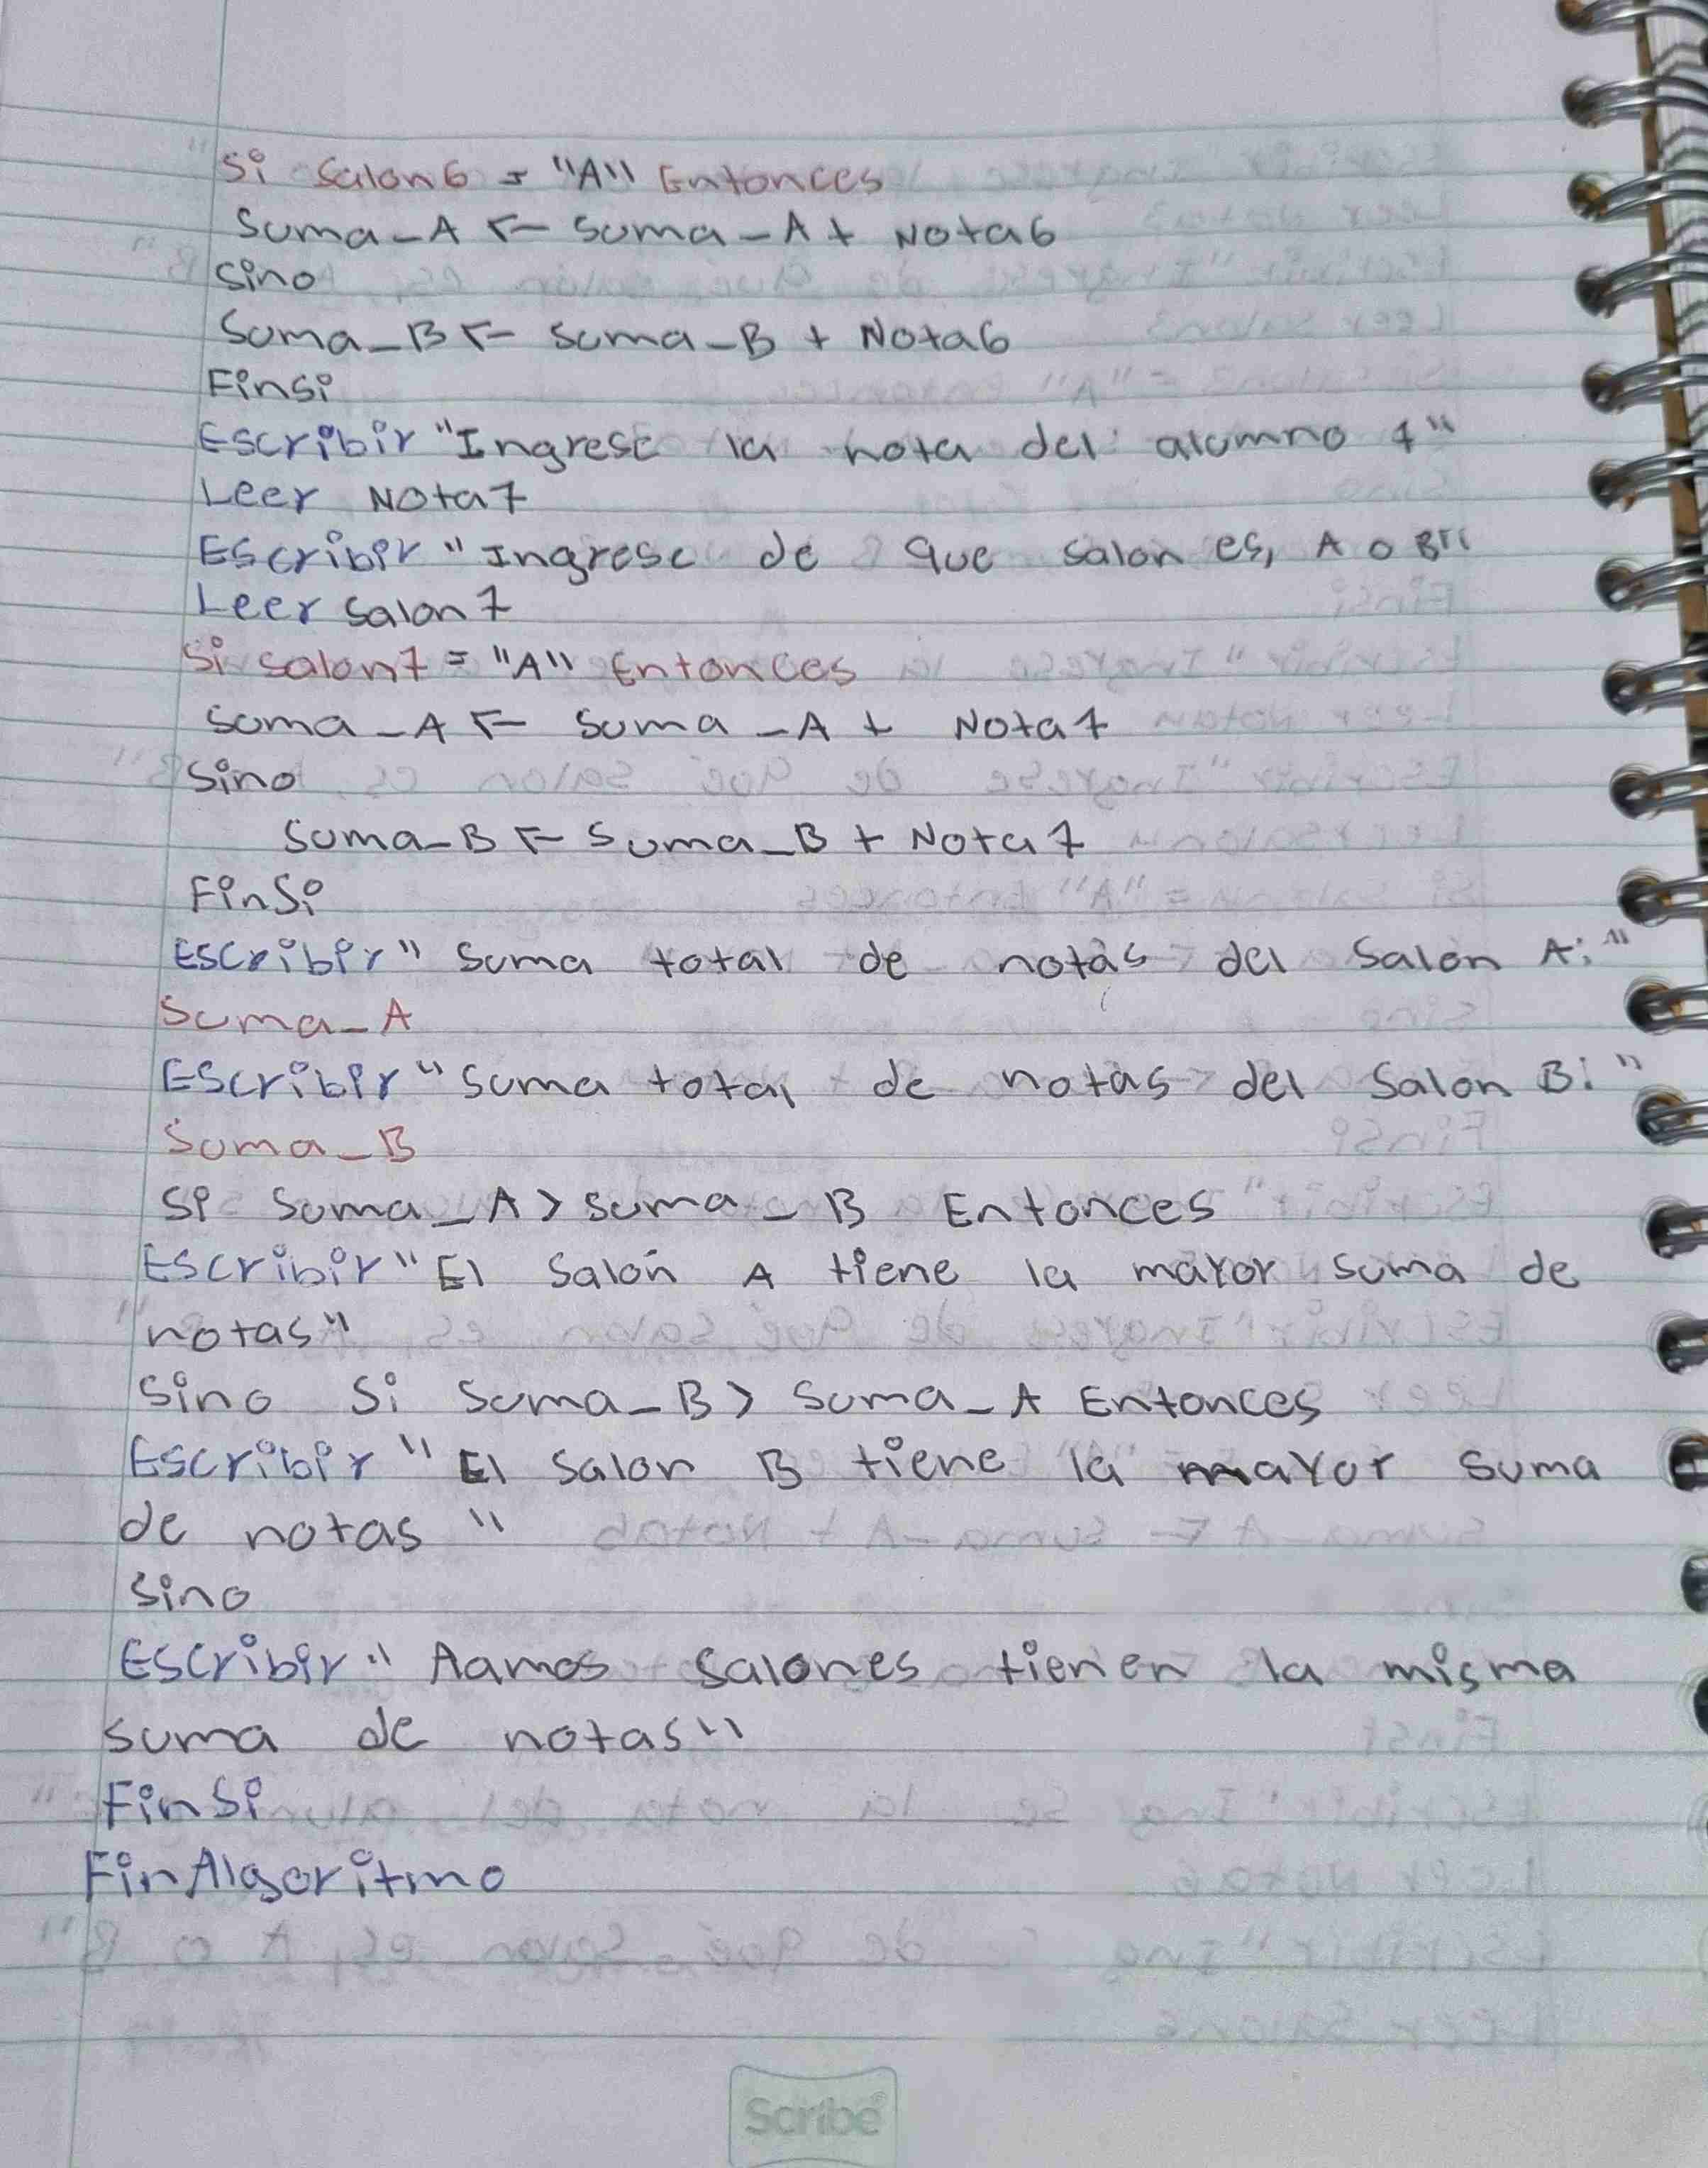 Si Salon6 = "A" Entonces
Suma_A ← Suma_A + Nota6
Sino
Suma_B ← Suma_B + Nota6
Finsi
Escribir "Ingrese la nota del alumno 7"
Leer Nota7
Escribir "Ingrese de que salon es, A o B"
Leer salon7
Si salon7 = "A" Entonces
Suma_A ← Suma_A + Nota7
Sino
Suma_B ← Suma_B + Nota7
FinSi
Escribir" Suma total de notas del Salón A: "
Suma_A
Escribir "Suma total de notas del Salon B: "
Suma_B
Si Suma_A > Suma_B Entonces
Escribir "El Salón A tiene la mayor suma de
notas"
Sino Si Suma_B > Suma_A Entonces
Escribir "El Salon B tiene la mayor suma
de notas "
Sino
Escribir " Aamos Salones tienen la misma
suma de notas"
FinSi
FinAlgoritmo
Scribe